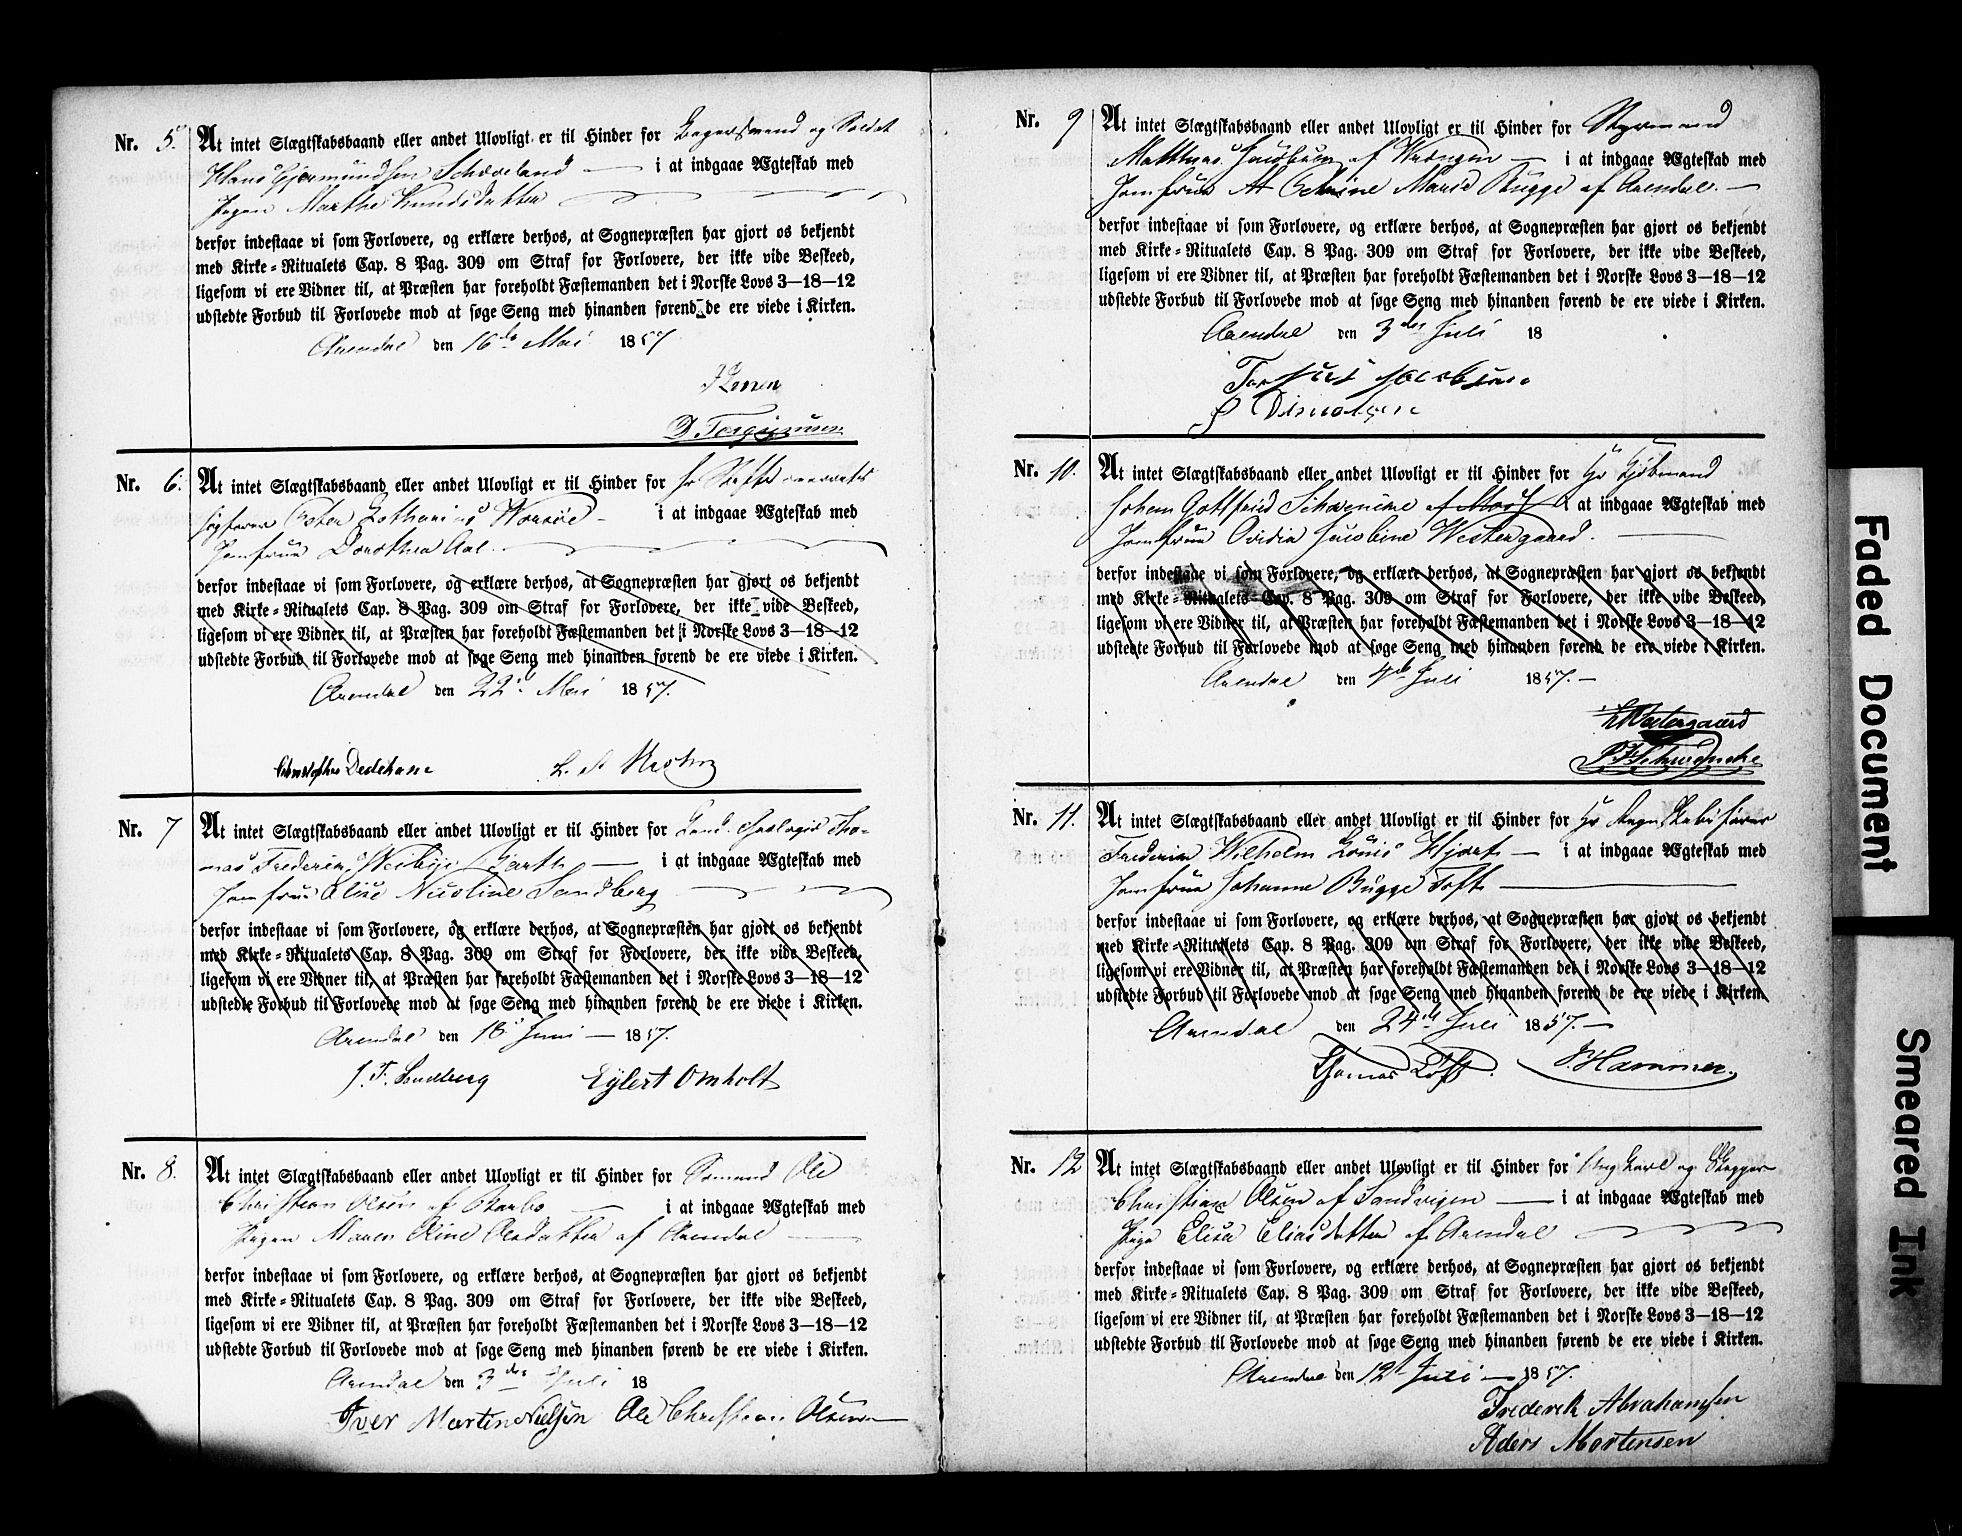 Nr. 5. At intet Slægtskabsbaand eller andet Ulovligt er til Hinder for og Soldat
Hans Gjermundsen i at indgaae Ægteskab med
Pigen Marthe Knudsdatter
derfor indestaae vi som Forlovere, og erklære derhos, at Sognepræsten har gjort os bekjendt
med Kirke-Ritualets Cap. 8 Pag. 309 om Straf for Forlovere, der ikke vide Beskeed,
ligesom vi ere Vidner til, at Præsten har foreholdt Fæstemanden det i Norske Lovs 3-18-12
udstedte Forbud til Forlovede mod at søge Seng med hinanden førend de ere viede i Kirken.
Arendal den 16de Mai 1857
Nr. 6. At intet Slægtskabsbaand eller andet Ulovligt er til Hinder for Hr
Peter Lotharius Worsøe - i at indgaae Ægteskab med
Jomfrue Dorothea Aal.
derfor indestaae vi som Forlovere, og erklære derhos, at Sognepræsten har gjort os bekjendt
med Kirke-Ritualets Cap. 8 Pag. 309 om Straf for Forlovere, der ikke vide Beskeed,
ligesom vi ere Vidner til, at Præsten har foreholdt Fæstemanden det i Norske Lovs 3-18-12
udstedte Forbud til Forlovede mod at søge Seng med hinanden førend de ere viede i Kirken.
Arendal den 22de Mai 1857.
Christopher Dedekam
Nr. 7 At intet Slægtskabsbaand eller andet Ulovligt er til Hinder for Cand. theologiæ Tho-
mas Frederik Westbye Barth i at indgaae Ægteskab med
Jomfrue Elise Nicoline Sandberg
derfor indestaae vi som Forlovere, og erklære derhos, at Sognepræsten har gjort os bekjendt
med Kirke-Ritualets Cap. 8 Pag. 309 om Straf for Forlovere, der ikke vide Beskeed,
ligesom vi ere Vidner til, at Præsten har foreholdt Fæstemanden det i Norske Lovs 3-18-12
udstedte Forbud til Forlovede mod at søge Seng med hinanden førend de ere viede i Kirken.
Arendal den 18 Juni - 1857.
J. F. Sandberg Eylert Omholt
Nr. 8. At intet Slægtskabsbaand eller andet Ulovligt er til Hinder for Sømand Ole
Christian Olsen af Barbo i at indgaae Ægteskab med
Pigen Maren Oline Olsdatter af Arendal
derfor indestaae vi som Forlovere, og erklære derhos, at Sognepræsten har gjort os bekjendt
med Kirke-Ritualets Cap. 8 Pag. 309 om Straf for Forlovere, der ikke vide Beskeed,
ligesom vi ere Vidner til, at Præsten har foreholdt Fæstemanden det i Norske Lovs 3-18-12
udstedte Forbud til Forlovede mod at søge Seng med hinanden førend de ere viede i Kirken.
Arendal den 3die Juli 18
Iver Martin Nielsen Ole Christian Olsen
Nr. 9 At intet Slægtskabsbaand eller andet Ulovligt er til Hinder for Styrmand
Mathias Jacobsen af i at indgaae Ægteskab med
Jomfrue Marie Bugge af Arendal. -
derfor indestaae vi som Forlovere, og erklære derhos, at Sognepræsten har gjort os bekjendt
med Kirke-Ritualets Cap. 8 Pag. 309 om Straf for Forlovere, der ikke vide Beskeed,
ligesom vi ere Vidner til, at Præsten har foreholdt Fæstemanden det i Norske Lovs 3-18-12
udstedte Forbud til Forlovede mod at søge Seng med hinanden førend de ere viede i Kirken.
Arendal den 3die Juli 18
Jacobsen
Nr. 10. At intet Slægtskabsbaand eller andet Ulovligt er til Hinder for Hr Kjøbmand
Johan Gottfried i at indgaae Ægteskab med
Jomfrue Ovidia Jacobine Westergaard.
derfor indestaae vi som Forlovere, og erklære derhos, at Sognepræsten har gjort os bekjendt
med Kirke-Ritualets Cap. 8 Pag. 309 om Straf for Forlovere, der ikke vide Beskeed,
ligesom vi ere Vidner til, at Præsten har foreholdt Fæstemanden det i Norske Lovs 3-18-12
udstedte Forbud til Forlovede mod at søge Seng med hinanden førend de ere viede i Kirken.
Arendal den 4de Juli 1857. -
Westergaard
Nr. 11. At intet Slægtskabsbaand eller andet Ulovligt er til Hinder for Hr Regnskabsfører
Frederik Wilhelm Louis Hjort - i at indgaae Ægteskab med
Jomfrue Johanne Bugge Toft
derfor indestaae vi som Forlovere, og erklære derhos, at Sognepræsten har gjort os bekjendt
med Kirke-Ritualets Cap. 8 Pag. 309 om Straf for Forlovere, der ikke vide Beskeed,
ligesom vi ere Vidner til, at Præsten har foreholdt Fæstemanden det i Norske Lovs 3-18-12
udstedte Forbud til Forlovede mod at søge Seng med hinanden førend de ere viede i Kirken.
Arendal den 24de Juli 1857. -
Thomas Toft. Hammer.
Nr. 12 At intet Slægtskabsbaand eller andet Ulovligt er til Hinder for Ungkarl og
Christian Olsen af Sandvigen i at indgaae Ægteskab med
Pige Elise Eliasdatter af Arendal
derfor indestaae vi som Forlovere, og erklære derhos, at Sognepræsten har gjort os bekjendt
med Kirke-Ritualets Cap. 8 Pag. 309 om Straf for Forlovere, der ikke vide Beskeed,
ligesom vi ere Vidner til, at Præsten har foreholdt Fæstemanden det i Norske Lovs 3-18-12
udstedte Forbud til Forlovede mod at søge Seng med hinanden førend de ere viede i Kirken.
Arendal den 12te Juli - 1857.
Frederik Abrahamsen
Aders Mortensen
Faded Document
Smeared Ink